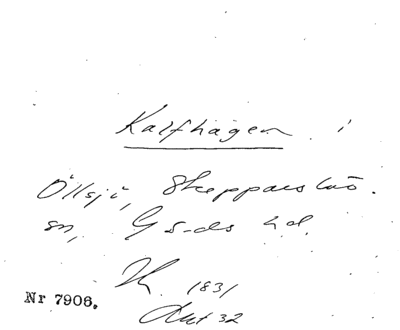 Kalfhagen i
Öllsjö, Skepparslöv
sn, Gärds hd.
1831
Akt 32
Nr 7906.